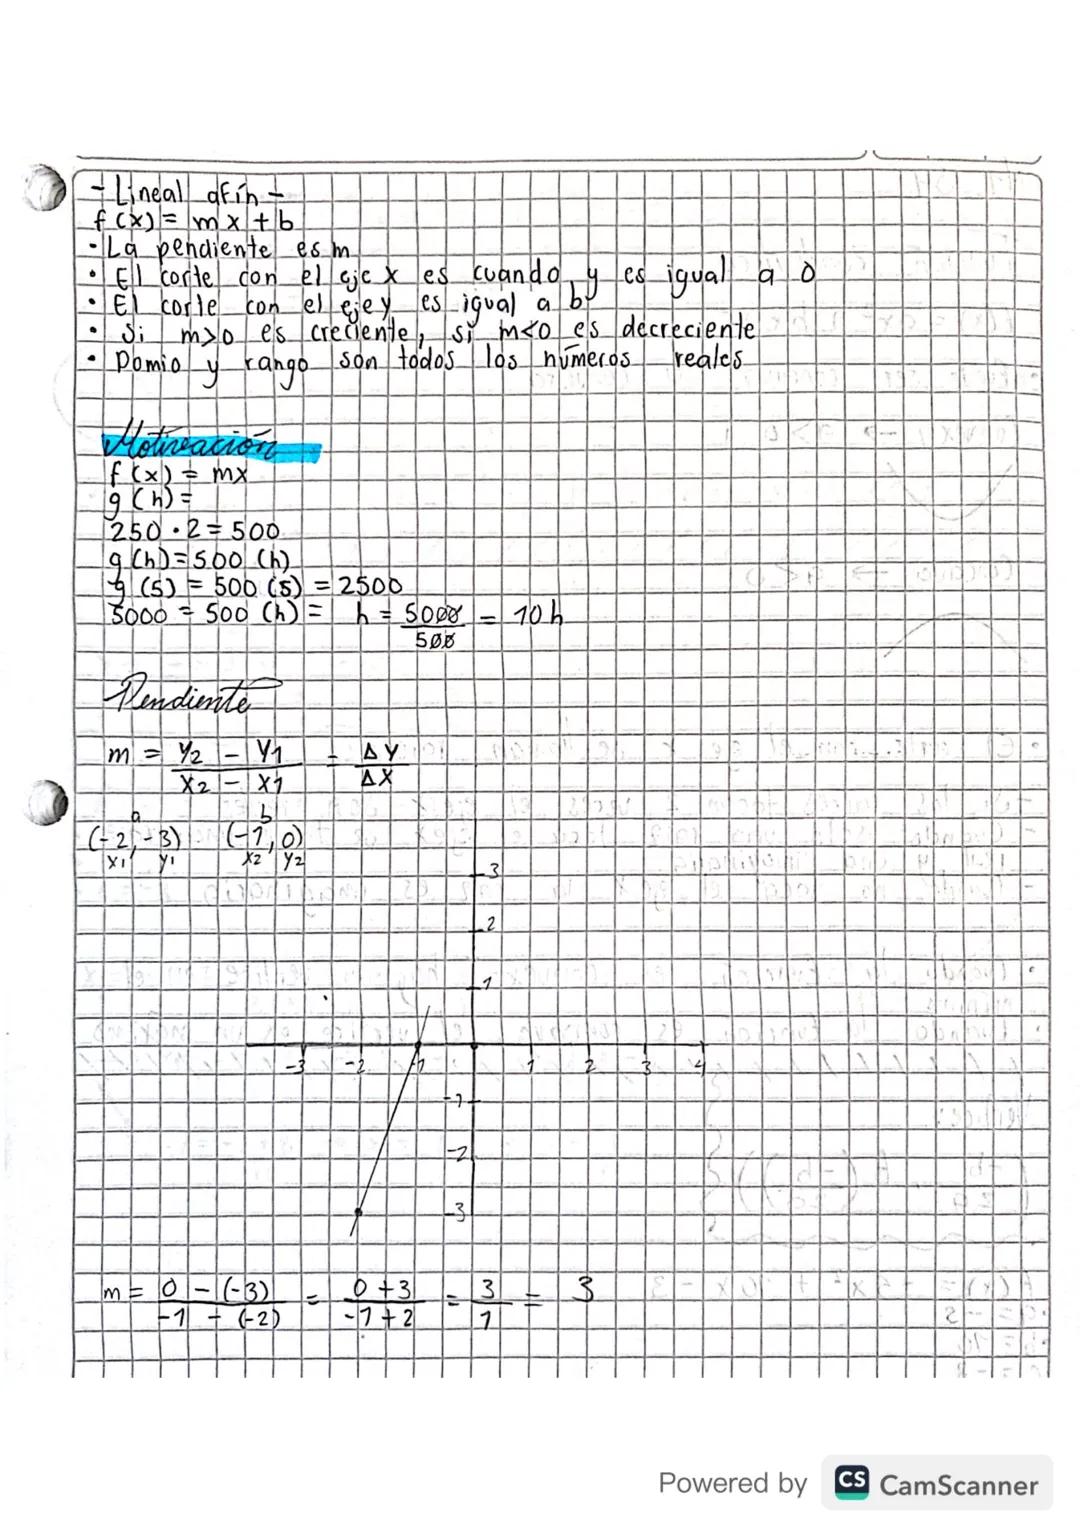 - Lineal afín -
f(x) = mx + b
• La pendiente es m
• El corte con el eje x es cuando y es igual a 0
• El corte con el eje y es igual a b
• Si m>0 es creciente, si m<0 es decreciente
• Domio y rango son todos los números reales
Motivación
f(x) = mx
g(h) =
250 · 2 = 500
g(h) = 500 (h)
g(5) = 500 (5) = 2500
5000 = 500 (h) = h = 5000 = 10 h
500
Pendiente
m = y2 - y1 = Δy
x2 - x1 Δx
a b
(-2,-3) (-1,0)
x1 y1 x2 y2
3
2
1
-3 -2 -1 1 2 3 4
-1
-2
-3
m = 0 - (-3) = 0+3 = 3 = 3
-1 - (-2) -1+2 1
Powered by CS CamScanner